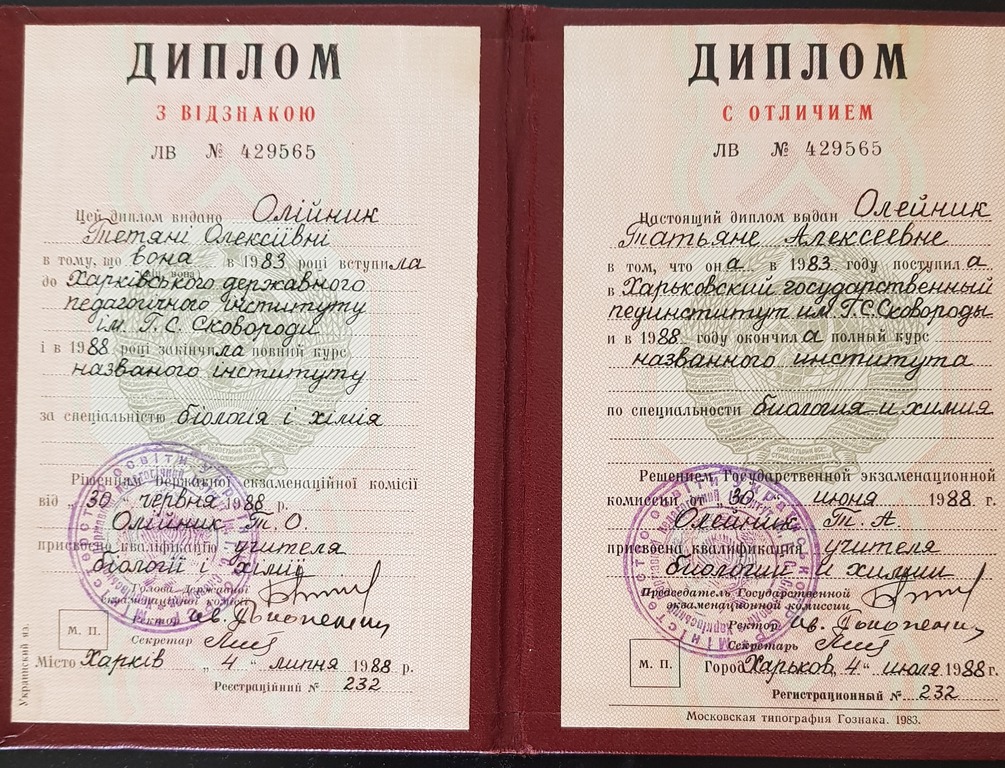 ДИПЛОМ
З ВІДЗНАКОЮ
ЛВ № 429565
Цей диплом видано Олійник
Тетяні Олексіївні
в тому, що вона в 1983 році вступила
до Харківського державного
педагогічного інституту
ім. Г. С. Сковороди
і в 1988 році закінчила повний курс
названого інституту
за спеціальністю біологія і хімія
Рішенням Державної екзаменаційної комісії
від „30“ червня 1988 р.
Олійник Т. О.
присвоєна кваліфікацію учителя
біології і хімії
Голова Державної
екзаменаційної комісії
Ректор
Секретар
М. П.
Місто Харків „4“ липня 1988 р.
Реєстраційний № 232
Украинский яз.
ДИПЛОМ
С ОТЛИЧИЕМ
ЛВ № 429565
Настоящий диплом выдан Олейник
Татьяне Алексеевне
в том, что она в 1983 году поступила
в Харьковский государственный
пединститут им. Г.С. Сковороды
и в 1988 году окончила полный курс
названного института
по специальности биология и химия
Решением Государственной экзаменационной
комиссии от „30“ июня 1988 г.
Олейник Т. А.
присвоена квалификация учителя
биологии и химии
Председатель Государственной
экзаменационной комиссии
Ректор
Секретарь
М. П.
Город Харьков „4“ июля 1988 г.
Регистрационный № 232
Московская типография Гознака. 1983.